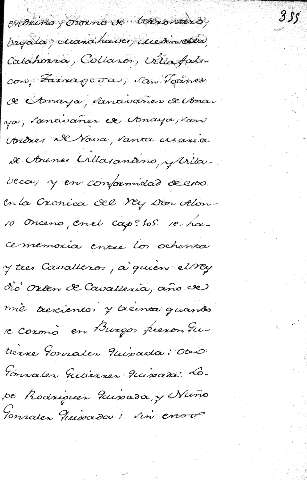 355
Calahorra, Collazos, Villafal-
con, Zarragoza, San Joanes
de Amaya,
de Amaya, San
Andres de Nava, Santa Maria
de Villasandino, y Villa-
veca; y en conformidad de esto
en la Cronica del Rey Don Alon-
so Onceno, en el cap.º 105 se ha-
ce memoria entre los ochenta
y tres Cavalleros, a quien el Rey
dió Orden de Cavalleria, año de
mil trescientos y treinta quando
se coronó en Burgos fueron Gu-
tierre Gonzalez Quixada: otro
Gonzalez Gutierrez Quixada: Lo-
pe Rodriguez Quixada, y Nuño
Gonzalez Quixada: sin